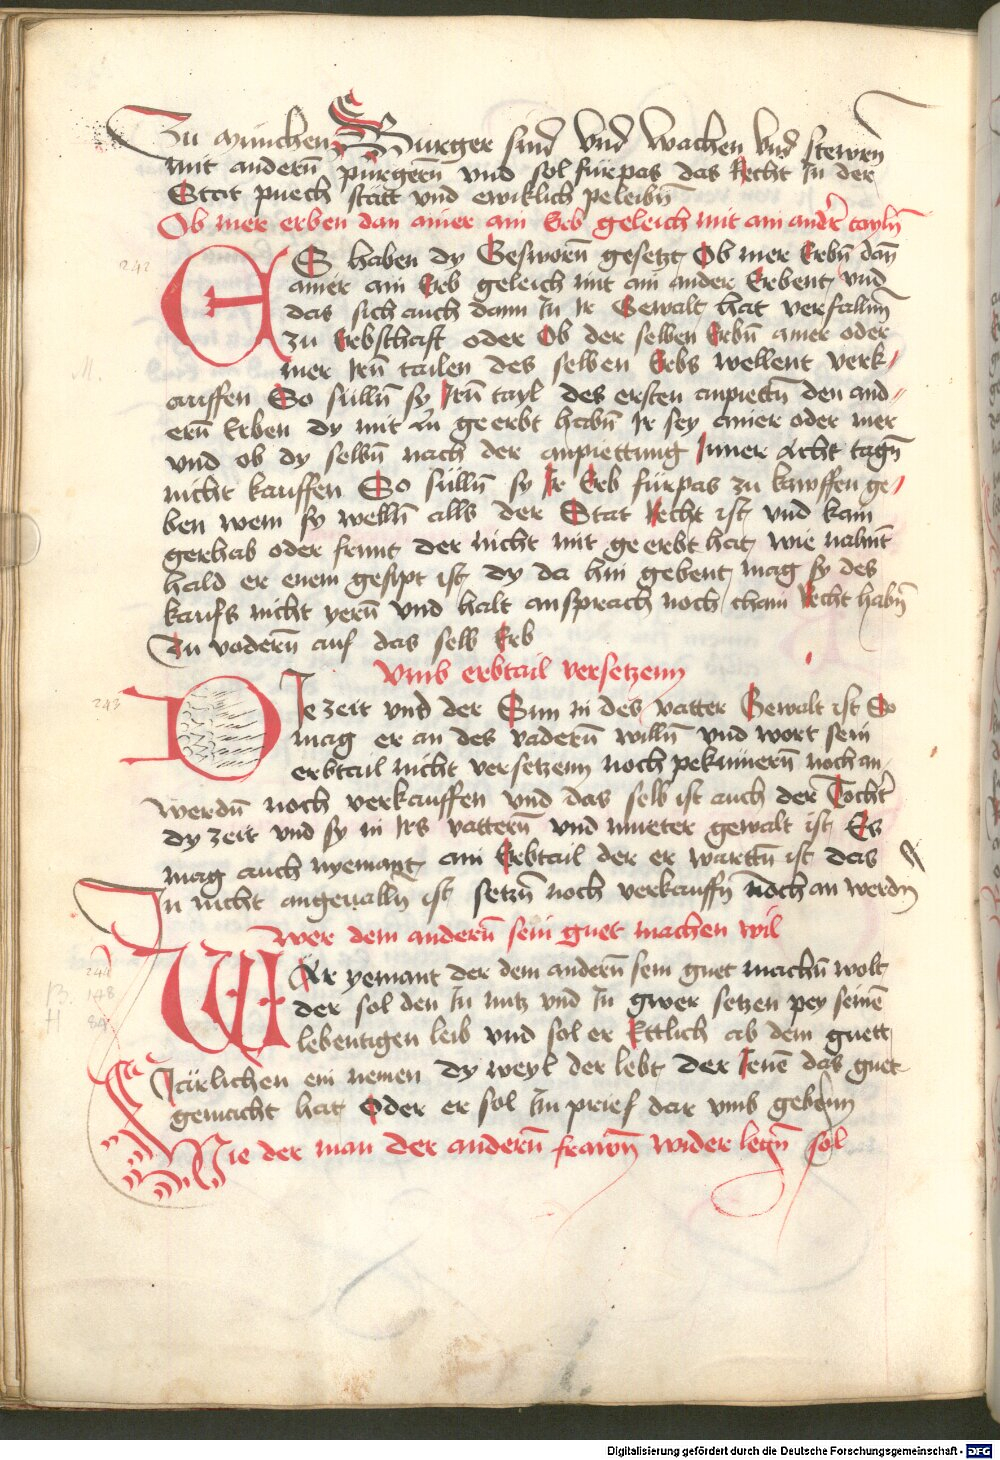 Zu München Burger sind vnd wachen vnd stewrn
mit andern̄ pürgern̄ vnd sol fürpas das Recht In der
Stat puech stätt vnd ewiklich peleibn̄
Ob mer erben dan ainer ain Erb geleich mit ain andr̄ tayln̄
242
ES haben dy Gesworn̄ gesetzt Ob mer Erbn̄ dan̄
ainer ain Erb geleich mit ain ander Erbent vnd
das sich auch dann In Ir Gewalt hat verfallnn̄
zu Erbschaft oder Ob der selben Erbn̄ ainer oder
mer Irn̄ tailen des selben Erbs wellent verk〃
auffen So sülln̄ sy Irn̄ tayl des ersten anpiettn̄ den and〃
ern̄ Erben dy mit In̄ geerbt habn̄ Ir sey ainer oder mer
vnd ob dy selbn̄ nach der anpiettung Inner Acht tagn̄
nicht kauffen So sülln̄ sy Ir Erb fürpas zu kawffen ge〃
ben wem sy welln̄ alls der Stat Recht ist vnd kain
gerhab oder frunt der nicht mit geerbt hat wie nahnt
hald er enem gesipt ist dy da hin gebent mag sy des
kaufs nicht yern̄ vnd halt ansprach noch chain Recht habn̄
Zu vodern̄ auf das selb Erb
vmb erbtail versetzenn
243
DIe zeit vnd der Sun in des vatter Gewalt ist So
mag er an des vadern̄ willn̄ vnd wort sein
erbtail nicht versetzenn noch pekünnern̄ noch an
werdn̄ noch verkauffen vnd das selb ist auch der Tochtr̄
dy zeit vnd sy in Irs vattern̄ vnd mueter gewalt ist Es
mag auch nyemant ain Erbtail der er warttn̄ ist das
In nicht angeualln̄ ist setzn̄ noch verkauffn̄ noch an werdn̄
Wer dem andern̄ sein guet machen wil
244
148
WAr yemant der dem andern̄ sein guet machn̄ wolt
der sol den In nutz vnd In gwer setzen pey seinē
lebentigen leib vnd sol er Ettlich ab dem guett
Järlichen ein nemen dy weyl der lebt der Ienē das guet
gemacht hat Oder er sol Im prief dar vmb gebenn
Wie der man der andern̄ frawn̄ wider legn̄ sol
Digitalisierung gefördert durch die Deutsche Forschungsgemeinschaft - DFG